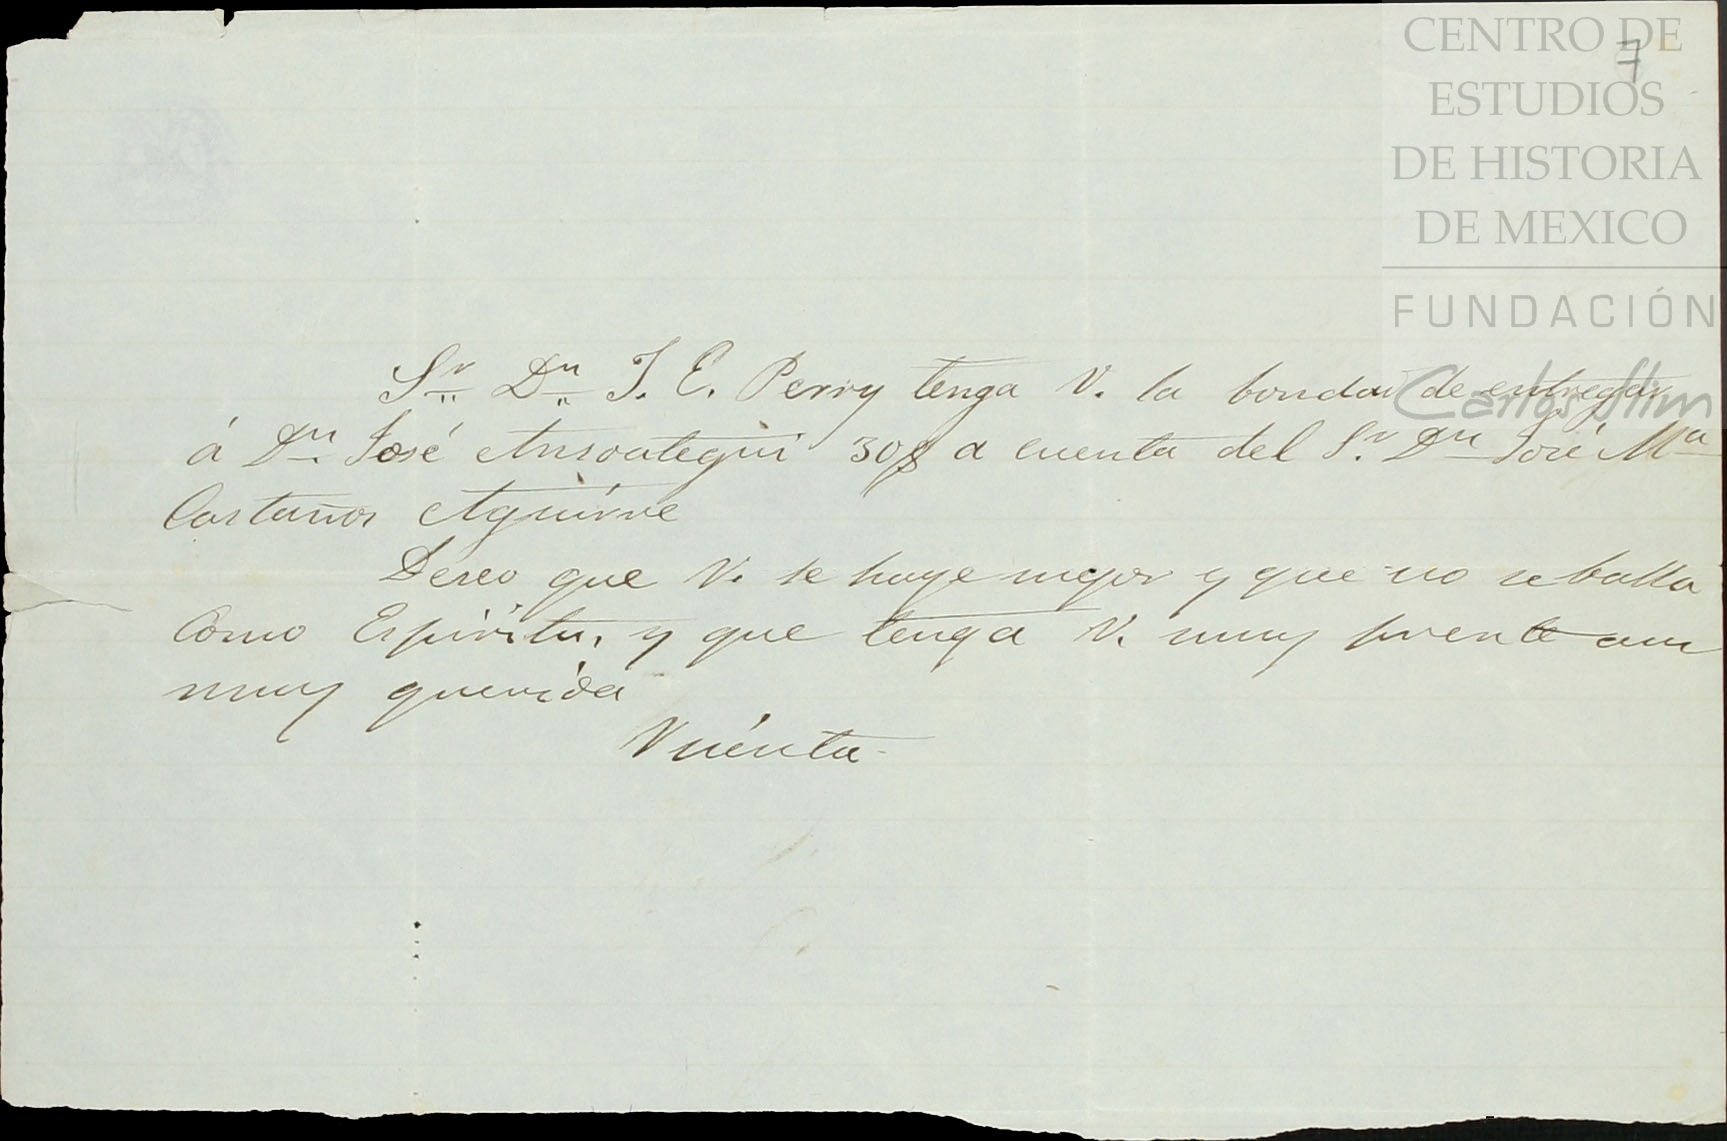 CENTRO DE
ESTUDIOS
DE HISTORIA
DE MEXICO
FUNDACIÓN
Carlos Slim
7
Sr Dn J. E. Perry tenga V. la bondad de entregar
á Dn José Ansoategui 30$ a cuenta del Sr. Dn José Ma
Castaños Aguirre
Deseo que V. se haye mejor y que no se balla
como Espiritu, y que tenga V. muy precente a su
muy querida